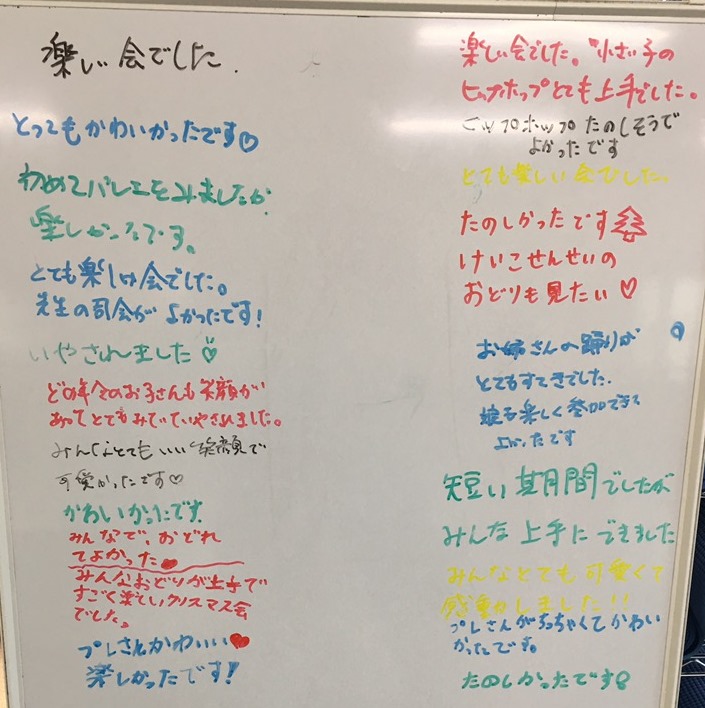 楽しい会でした.
とってもかわいかったです♡
初めてバレエをみましたが
楽しかったです。
とても楽しい会でした。
先生の司会が よかったです!
いやされました
どの年令のお子さんも笑顔が
あってとてもみていていやされました。
みんなとてもいい笑顔で
可愛かったです♡
かわいかったです.
みんなで、おどれ
てよかった♥
みんなおどりが上手で
すごく楽しいクリスマス会
でした。
プレさんかわいい♥
楽しかったです!
楽しい会でした。小さい子の
ヒップホップとても上手でした。
ヒップホップ たのしそうで
よかったです
とても楽しい会でした。
たのしかったです
けいこせんせいの
おどりも見たい♡
お姉さんの踊りが
とてもすてきでした.
娘も楽しく参加できて
よかったです
短い期間でしたが
みんな上手にできました
みんなとても可愛くて
感動しました!!
プレさんがちっちゃくてかわい
かったです。
たのしかったです